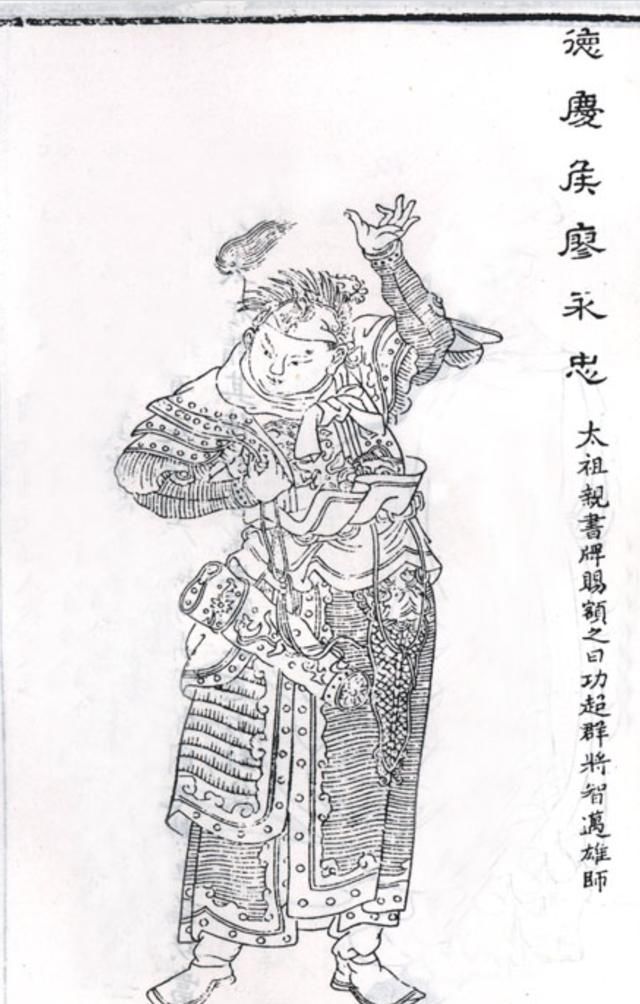 德慶侯廖永忠
太祖親書牌賜額之曰功超群將智邁雄師